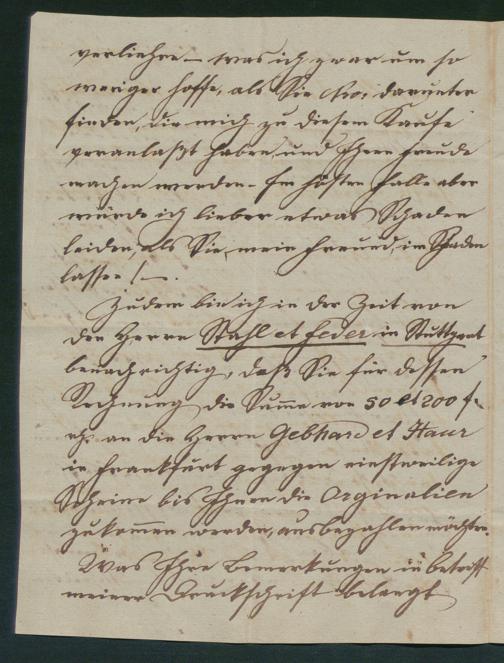 verliehre – was ich zwar um so
weniger hoffe, als Sie darunter
finden, die mich zu diesem Kaufe
veranlaßt haben, und Ihnen Freude
machen werden – Im Falle aber
würde ich lieber etwas Schaden
leiden, als Sie, mein Freund, im Schaden
lassen! –
Zudem bin ich in der Zeit von
den Herrn Stahl et Feder in Stuttgart
benachrichtigt, daß Sie für dessen
Rechnung die Summe von 50 et 200 f
an die Herrn Gebhard et Haur
in Frankfurt gegen einstweilige
Scheine bis Ihnen die Orginalien
zukommen werden, ausbezahlen möchten.
Was Ihre Bemerkungen in betreff
meiner Druckschrift belangt